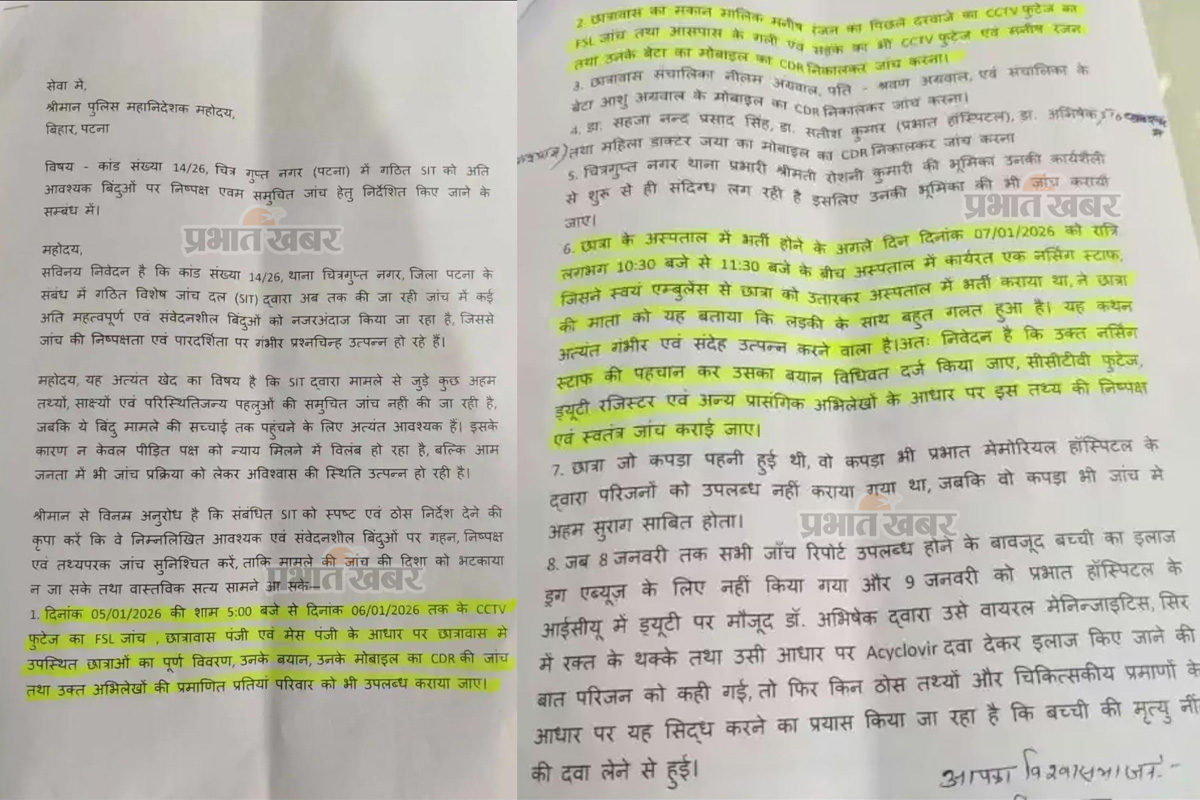 सेवा में,
श्रीमान पुलिस महानिदेशक महोदय,
बिहार, पटना
विषय - कांड संख्या 14/26, चित्र गुप्त नगर (पटना) में गठित SIT को अति
आवश्यक बिंदुओं पर निष्पक्ष एवम समुचित जांच हेतु निर्देशित किए जाने के
सम्बंध में।
प्रभात खबर
महोदय,
सविनय निवेदन है कि कांड संख्या 14/26, थाना चित्रगुप्त नगर, जिला पटना के
संबंध में गठित विशेष जांच दल (SIT) द्वारा अब तक की जा रही जांच में कई
अति महत्वपूर्ण एवं संवेदनशील बिंदुओं को नजरअंदाज किया जा रहा है, जिससे
जांच की निष्पक्षता एवं पारदर्शिता पर गंभीर प्रश्नचिन्ह उत्पन्न हो रहे हैं।
महोदय, यह अत्यंत खेद का विषय है कि SIT द्वारा मामले से जुड़े कुछ अहम
तथ्यों, साक्ष्यों एवं परिस्थितिजन्य पहलुओं की समुचित जांच नहीं की जा रही है,
जबकि ये बिंदु मामले की सच्चाई तक पहुंचने के लिए अत्यंत आवश्यक हैं। इसके
कारण न केवल पीड़ित पक्ष को न्याय मिलने में विलंब हो रहा है, बल्कि आम
जनता में भी जांच प्रक्रिया को लेकर अविश्वास की स्थिति उत्पन्न हो रही है।
श्रीमान से विनम्र अनुरोध है कि संबंधित SIT को स्पष्ट एवं ठोस निर्देश देने की
कृपा करें कि वे निम्नलिखित आवश्यक एवं संवेदनशील बिंदुओं पर गहन, निष्पक्ष
एवं तथ्यपरक जांच सुनिश्चित करें, ताकि मामले की जांच की दिशा को भटकाया
न जा सके तथा वास्तविक सत्य सामने आ सके—
प्रभात खबर
1. दिनांक 05/01/2026 की शाम 5:00 बजे से दिनांक 06/01/2026 तक के CCTV
फुटेज का FSL जांच , छात्रावास पंजी एवं मेस पंजी के आधार पर छात्रावास मे
उपस्थित छात्राओं का पूर्ण विवरण, उनके बयान, उनके मोबाइल का CDR की जांच
तथा उक्त अभिलेखों की प्रमाणित प्रतियां परिवार को भी उपलब्ध कराया जाए।
2. छात्रावास का मकान मालिक मनीष रंजन का पिछले दरवाजे का CCTV फुटेज का
FSL जांच तथा आसपास के गली एवं सड़के का भी CCTV फुटेज एवं मनीष रंजन
तथा उनके बेटा का मोबाइल का CDR निकालकर जांच करना।
3. छात्रावास संचालिका नीलम अग्रवाल, पति - श्रवण अग्रवाल, एवं संचालिका के
बेटा आशु अग्रवाल के मोबाइल का CDR निकालकर जांच करना।
4. डा. सहजा नन्द प्रसाद सिंह, डा. सतीश कुमार (प्रभात हॉस्पिटल), डा. अभिषेक
तथा महिला डाक्टर जया का मोबाइल का CDR निकालकर जांच करना
5. चित्रगुप्त नगर थाना प्रभारी श्रीमती रोशनी कुमारी की भूमिका उनकी कार्यशैली
से शुरू से ही संदिग्ध लग रही है इसलिए उनकी भूमिका की भी जांच करायी
जाए।
प्रभात खबर
6. छात्रा के अस्पताल में भर्ती होने के अगले दिन दिनांक 07/01/2026 को रात्रि
लगभग 10:30 बजे से 11:30 बजे के बीच अस्पताल में कार्यरत एक नर्सिंग स्टाफ,
जिसने स्वयं एम्बुलेंस से छात्रा को उतारकर अस्पताल में भर्ती कराया था, ने छात्रा
की माता को यह बताया कि लड़की के साथ बहुत गलत हुआ है। यह कथन
अत्यंत गंभीर एवं संदेह उत्पन्न करने वाला है।अतः निवेदन है कि उक्त नर्सिंग
स्टाफ की पहचान कर उसका बयान विधिवत दर्ज किया जाए, सीसीटीवी फुटेज,
ड्यूटी रजिस्टर एवं अन्य प्रासंगिक अभिलेखों के आधार पर इस तथ्य की निष्पक्ष
एवं स्वतंत्र जांच कराई जाए।
7. छात्रा जो कपड़ा पहनी हुई थी, वो कपड़ा भी प्रभात मेमोरियल हॉस्पिटल के
द्वारा परिजनों को उपलब्ध नहीं कराया गया था, जबकि वो कपड़ा भी जांच मे
अहम सुराग साबित होता।
प्रभात खबर
8. जब 8 जनवरी तक सभी जाँच रिपोर्ट उपलब्ध होने के बावजूद बच्ची का इलाज
ड्रग एब्यूज के लिए नहीं किया गया और 9 जनवरी को प्रभात हॉस्पिटल के
आईसीयू में ड्यूटी पर मौजूद डॉ. अभिषेक द्वारा उसे वायरल मेनिन्जाइटिस, सिर
में रक्त के थक्के तथा उसी आधार पर Acyclovir दवा देकर इलाज किए जाने की
बात परिजन को कही गई, तो फिर किन ठोस तथ्यों और चिकित्सकीय प्रमाणों के
आधार पर यह सिद्ध करने का प्रयास किया जा रहा है कि बच्ची की मृत्यु नीं
की दवा लेने से हुई।
आपका विश्वासभाजन:-